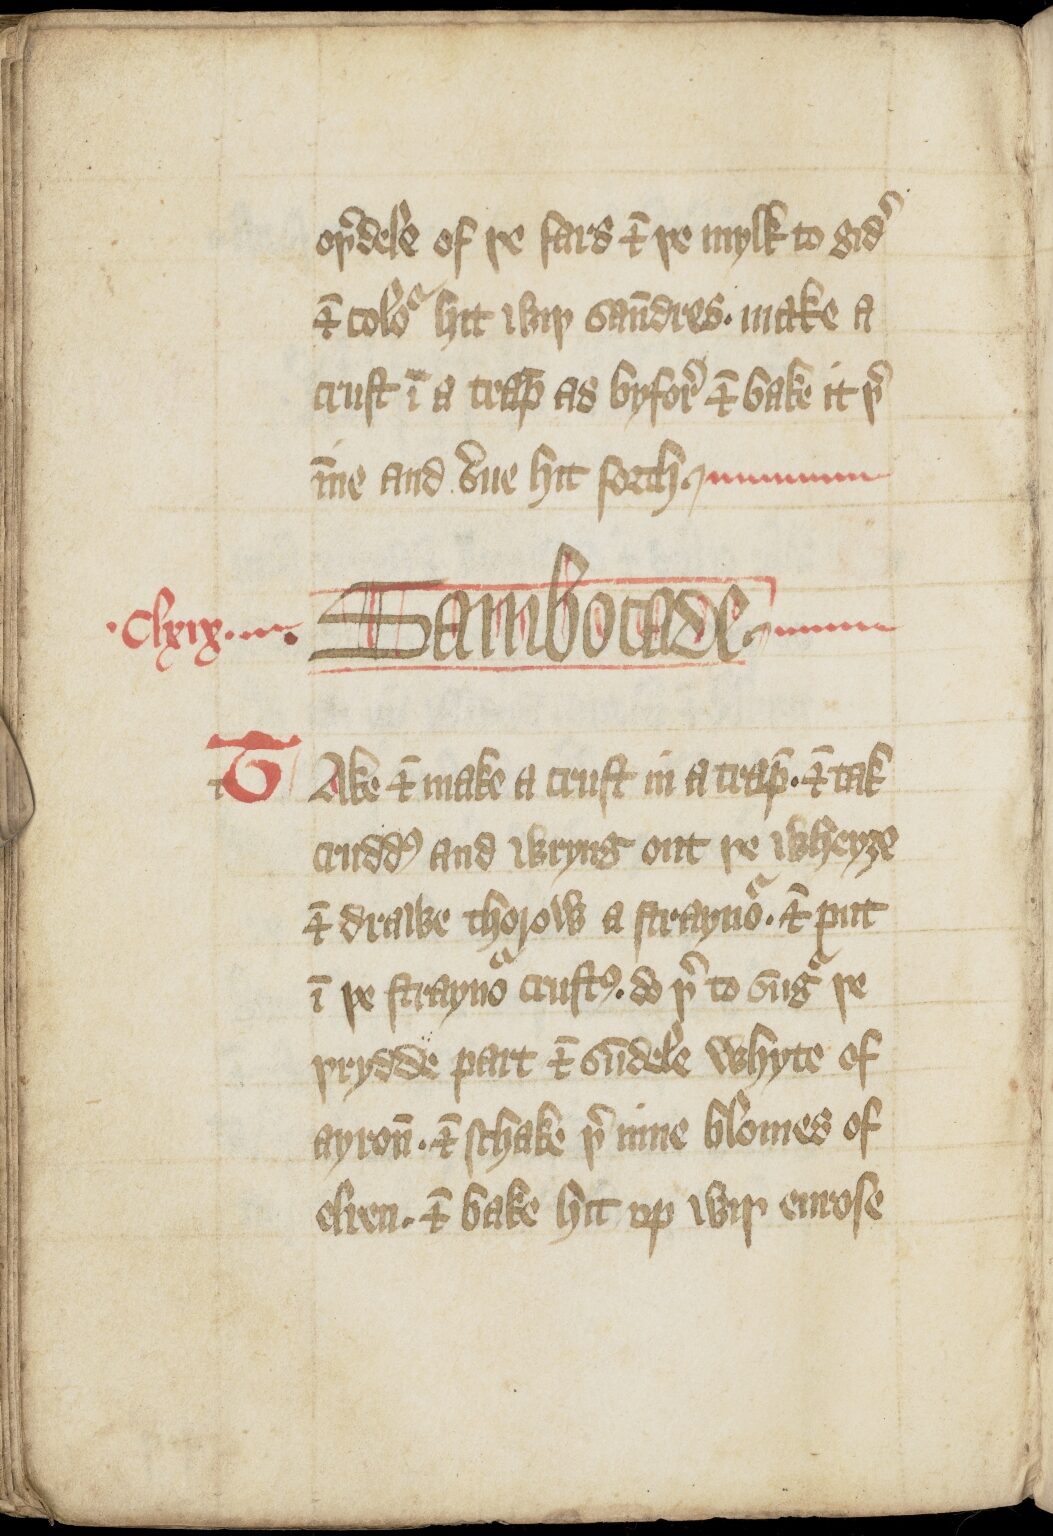 oþ̉dele of þe fars ⁊ þe mylk to gid̉
⁊ coloᷓ hit wiþ san̄dres. make a
crust ī a trap̄ as byfor̉ ⁊ bake it þ̉
īne and s̉ue hit forth.
.Clxix.
Sambocade.
TAke ⁊ make a crust in a trap̄. ⁊ tak
crudd᾽ and wryng out þe wheyȝe
⁊ drawe thorow a straynoᷓ. ⁊ put
ī þe straynoᷓ crust᾽. do þ̉ to sug̉ þe
þrydde part ⁊ sūdele whyte of
ayron̄. ⁊ schake þ̉ inne blomes of
elren. ⁊ bake hit up wiþ eurose